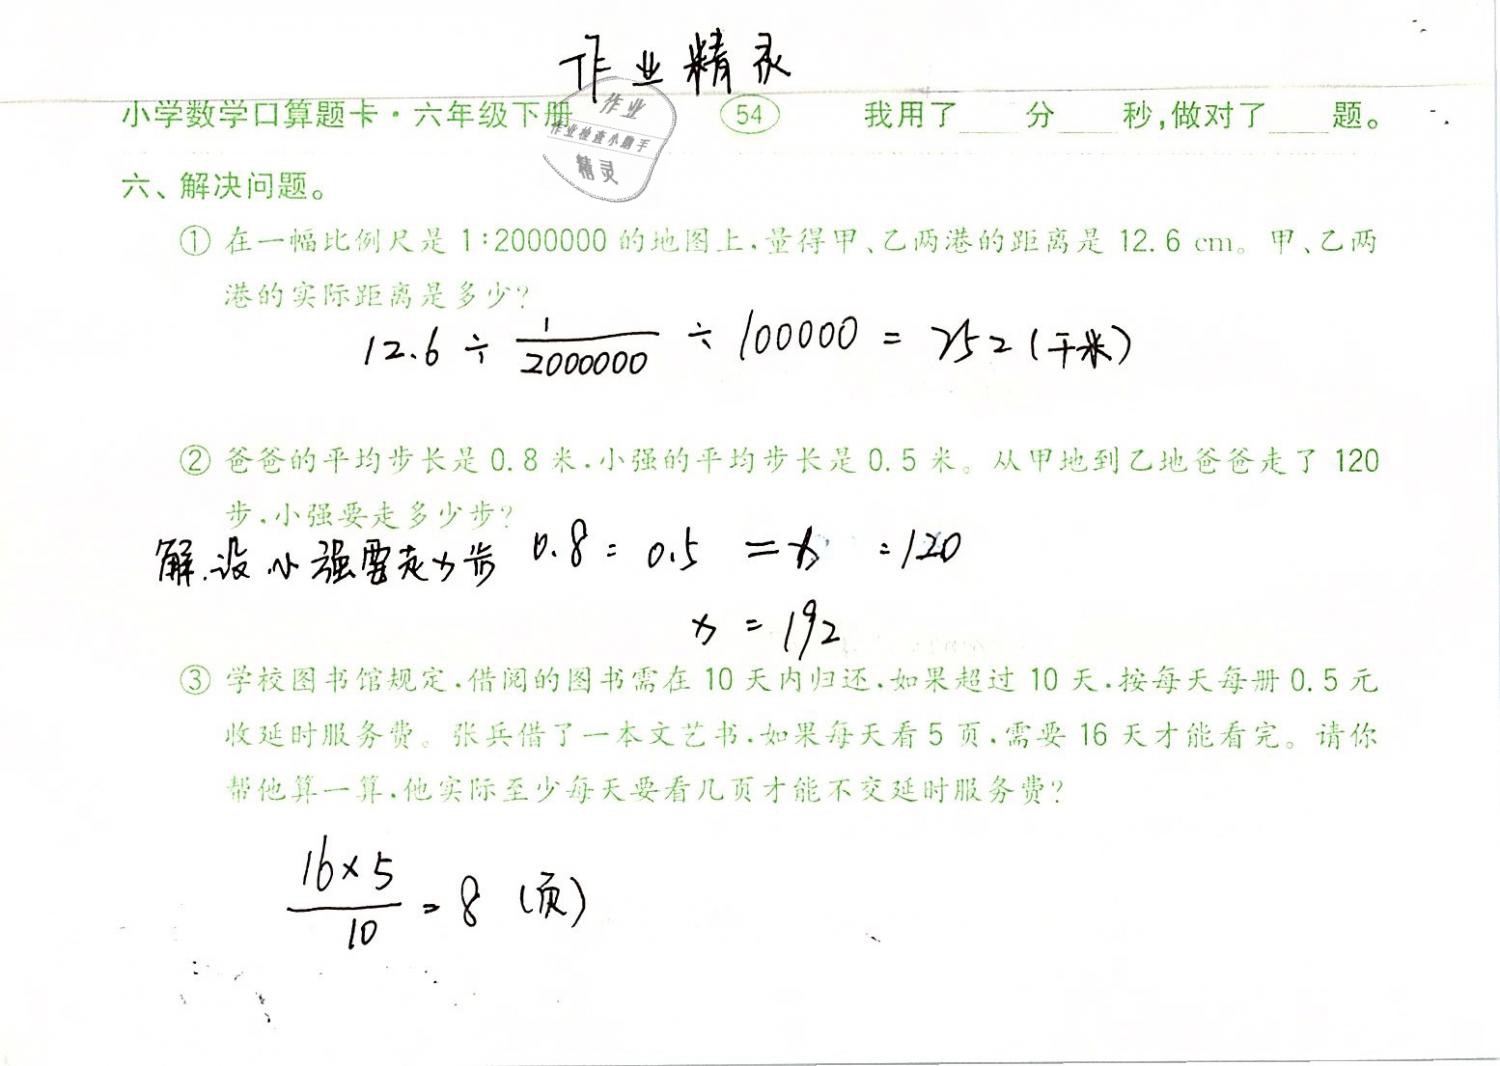 作业精灵
小学数学口算题卡·六年级下册 54 我用了 分 秒,做对了 题。
作业
作业检查小助手
精灵
六、解决问题。
① 在一幅比例尺是 1:2000000 的地图上,量得甲、乙两港的距离是 12.6 cm。甲、乙两
港的实际距离是多少?
12.6 ÷ 1/2000000 ÷ 100000 = 252 (千米)
② 爸爸的平均步长是 0.8 米,小强的平均步长是 0.5 米。从甲地到乙地爸爸走了 120
步,小强要走多少步?
解.设小强要走x步 0.8 : 0.5 = x : 120
x = 192
③ 学校图书馆规定,借阅的图书需在 10 天内归还,如果超过 10 天,按每天每册 0.5 元
收延时服务费。张兵借了一本文艺书,如果每天看 5 页,需要 16 天才能看完。请你
帮他算一算,他实际至少每天要看几页才能不交延时服务费?
16×5/10 = 8 (页)